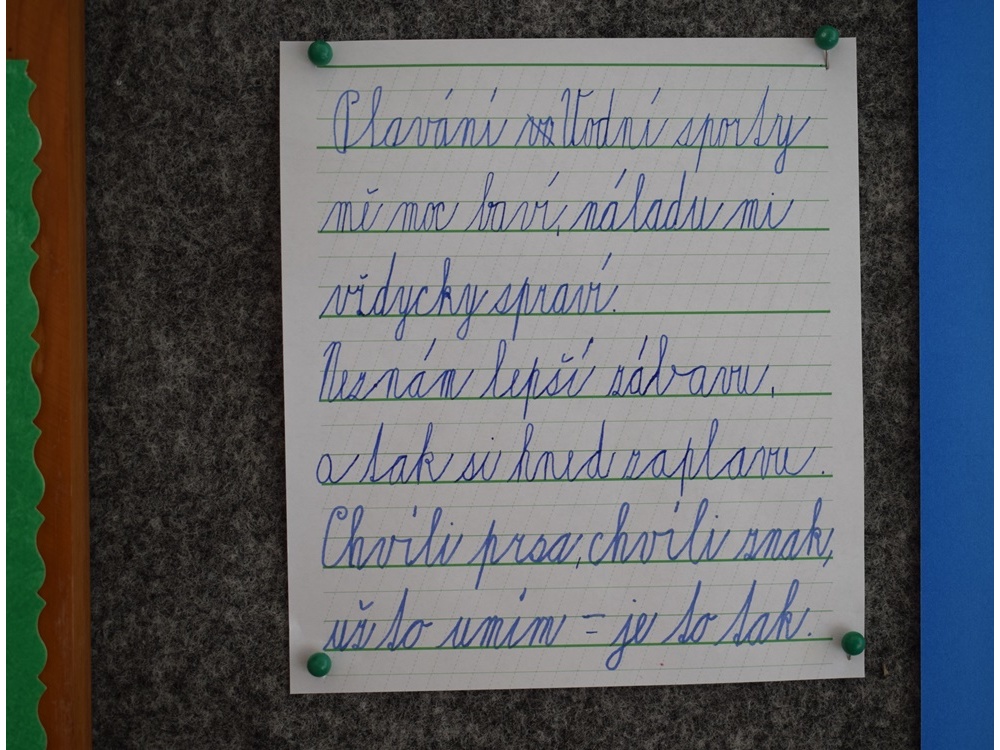 Plavání Vodní sporty
mě moc baví, náladu mi
vždycky spraví.
Neznám lepší zábavu,
a tak si hned zaplavu.
Chvíli prsa, chvíli znak,
už to umím = je to tak.